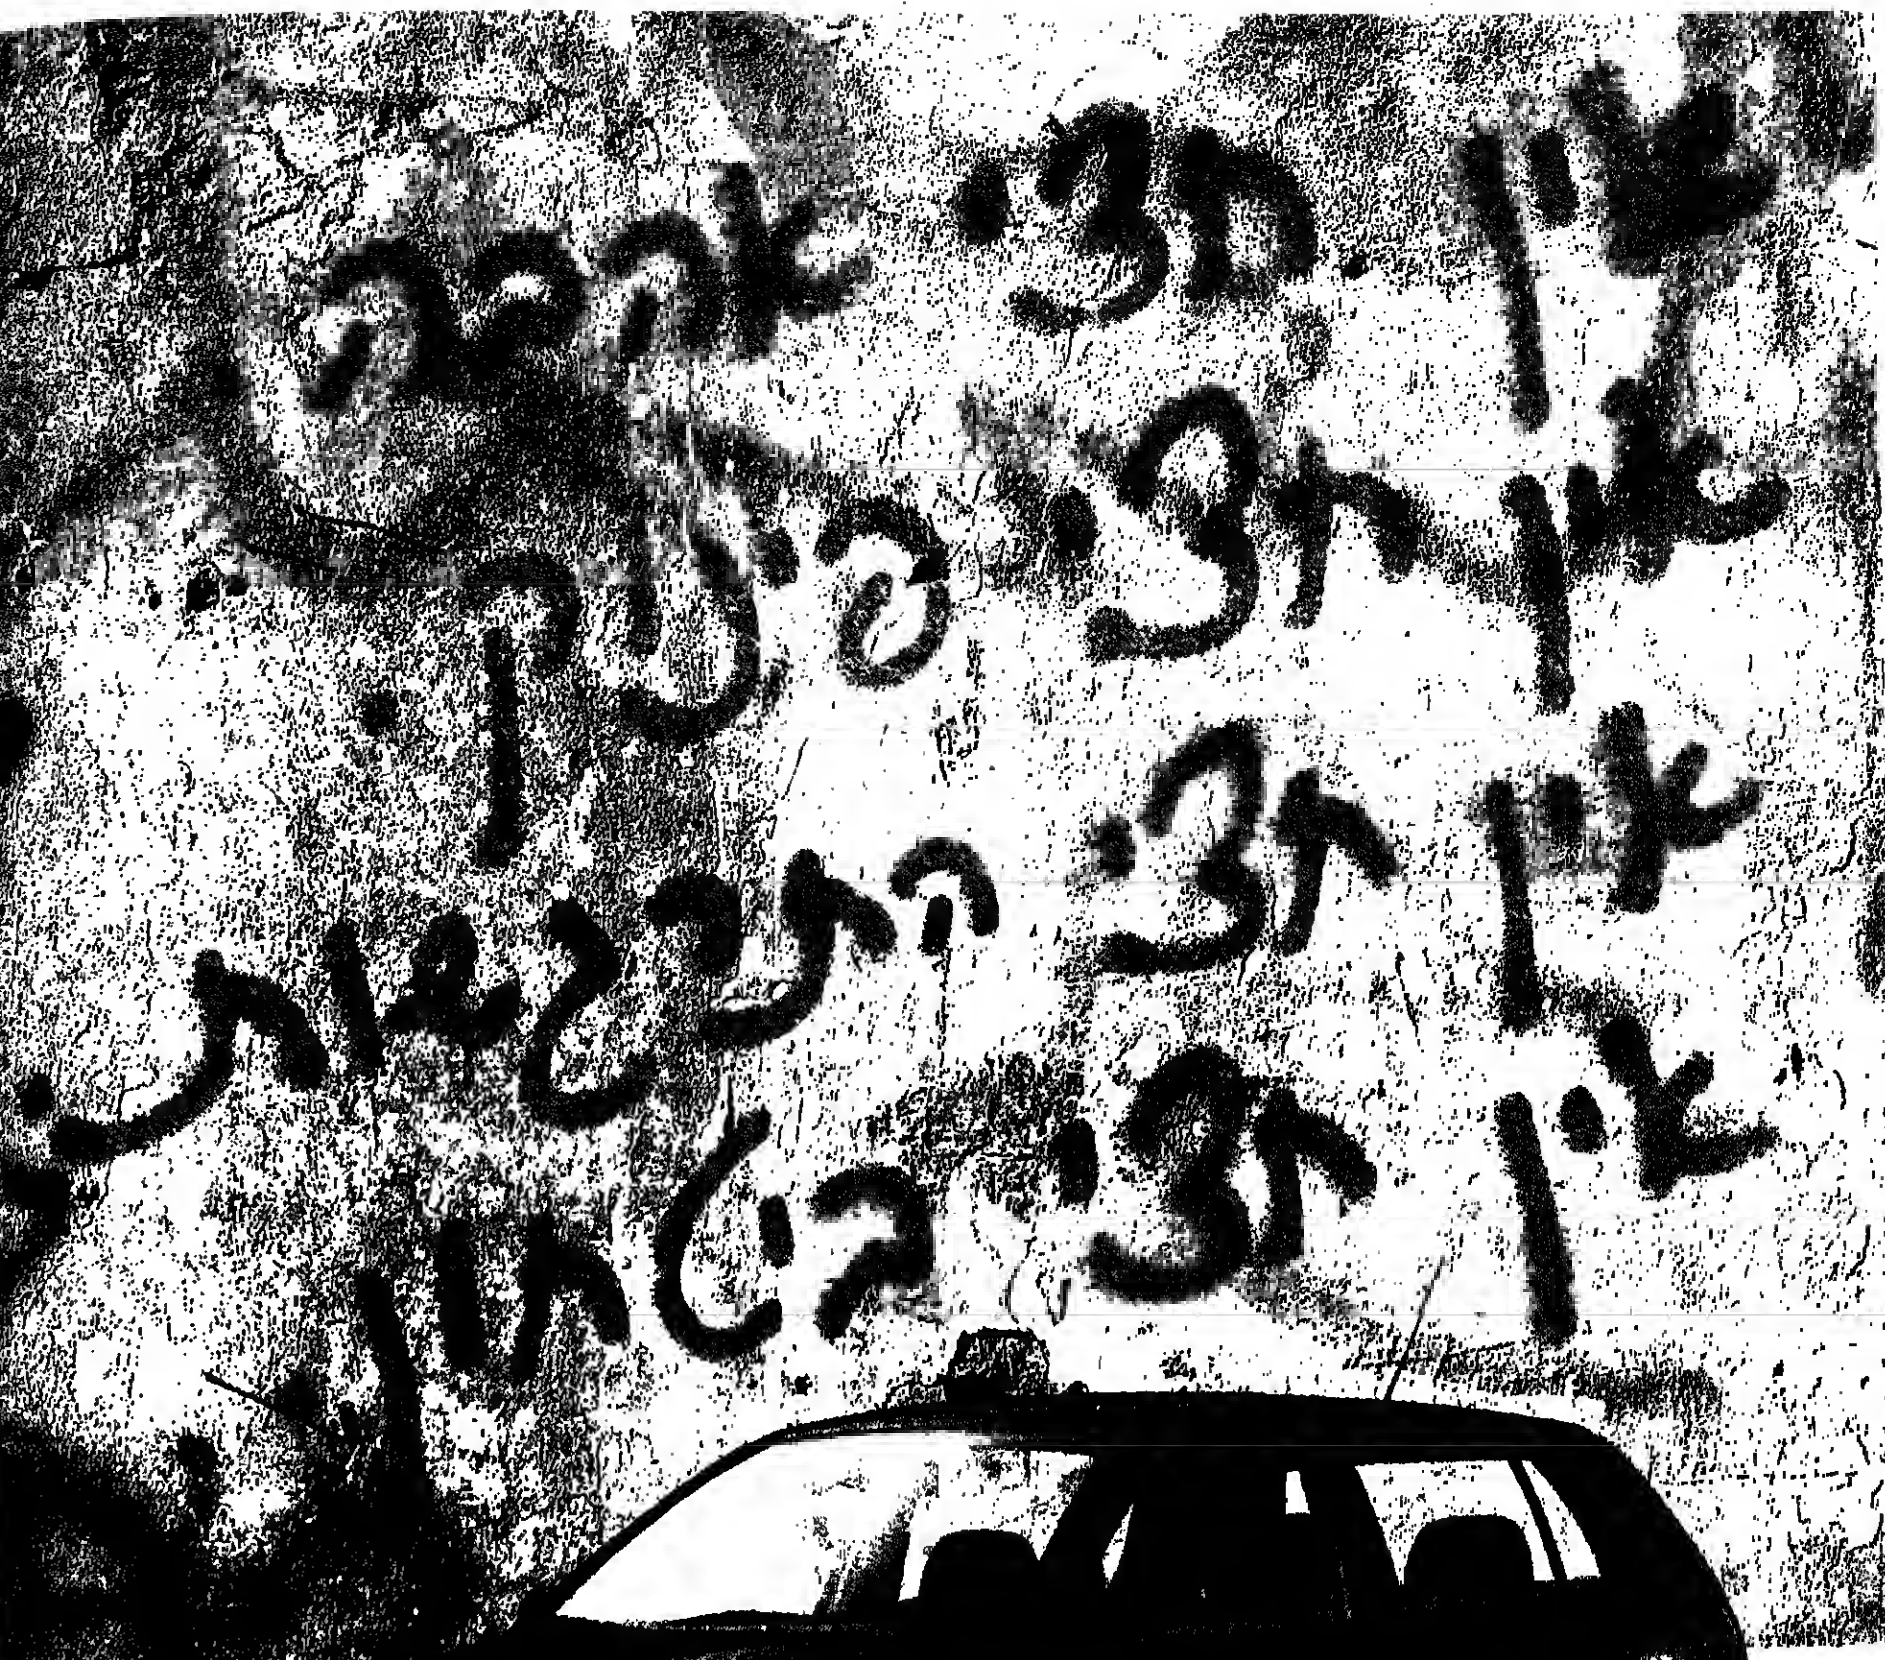 אין חצי אהבה
אין חצי סיפוק
אין חצי התרגשות
אין חצי ביטחון